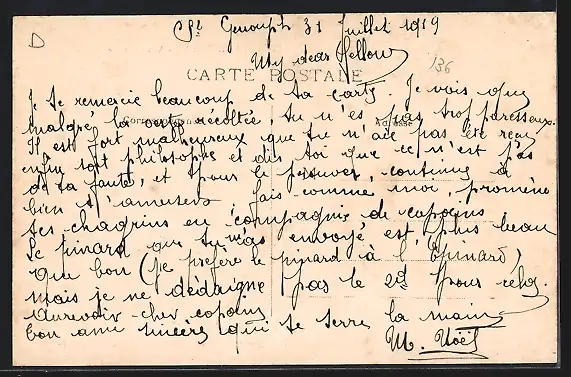 D
St Genouph 31 Juillet 1919
My dear Fellow
136
CARTE POSTALE
Je te remercie beaucoup de ta carte. Je vois que
Correspondance
Adresse
malgré la récoltée, tu n'es pas trop paresseux.
Il est fort malheureux que tu n'aie pas été reçu
enfin soit philosophe et dis toi que ce n'est pas
de ta faute, et pour le prouver, continue à
bien t'amuser, fais comme moi, promène
tes chagrins en compagnie de copains
Le pinard que tu m'as envoyé est plus beau
que bon (je préfère le pinard à l'Épinard)
mais je ne dédaigne pas le 2nd pour cela.
Aurevoir cher copain
bon ami sincère qui te serre la main
M. Noël